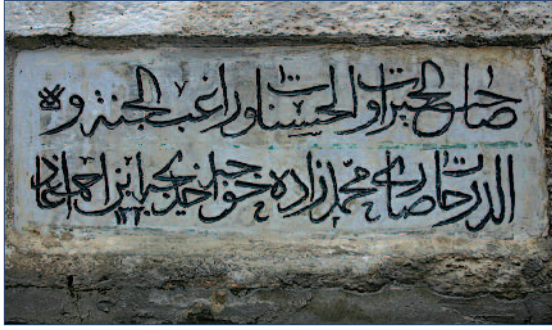 صاحب الخيرات والحسنات وراغب الجنة و
الدرجات صارى محمد زاده ابن احمد